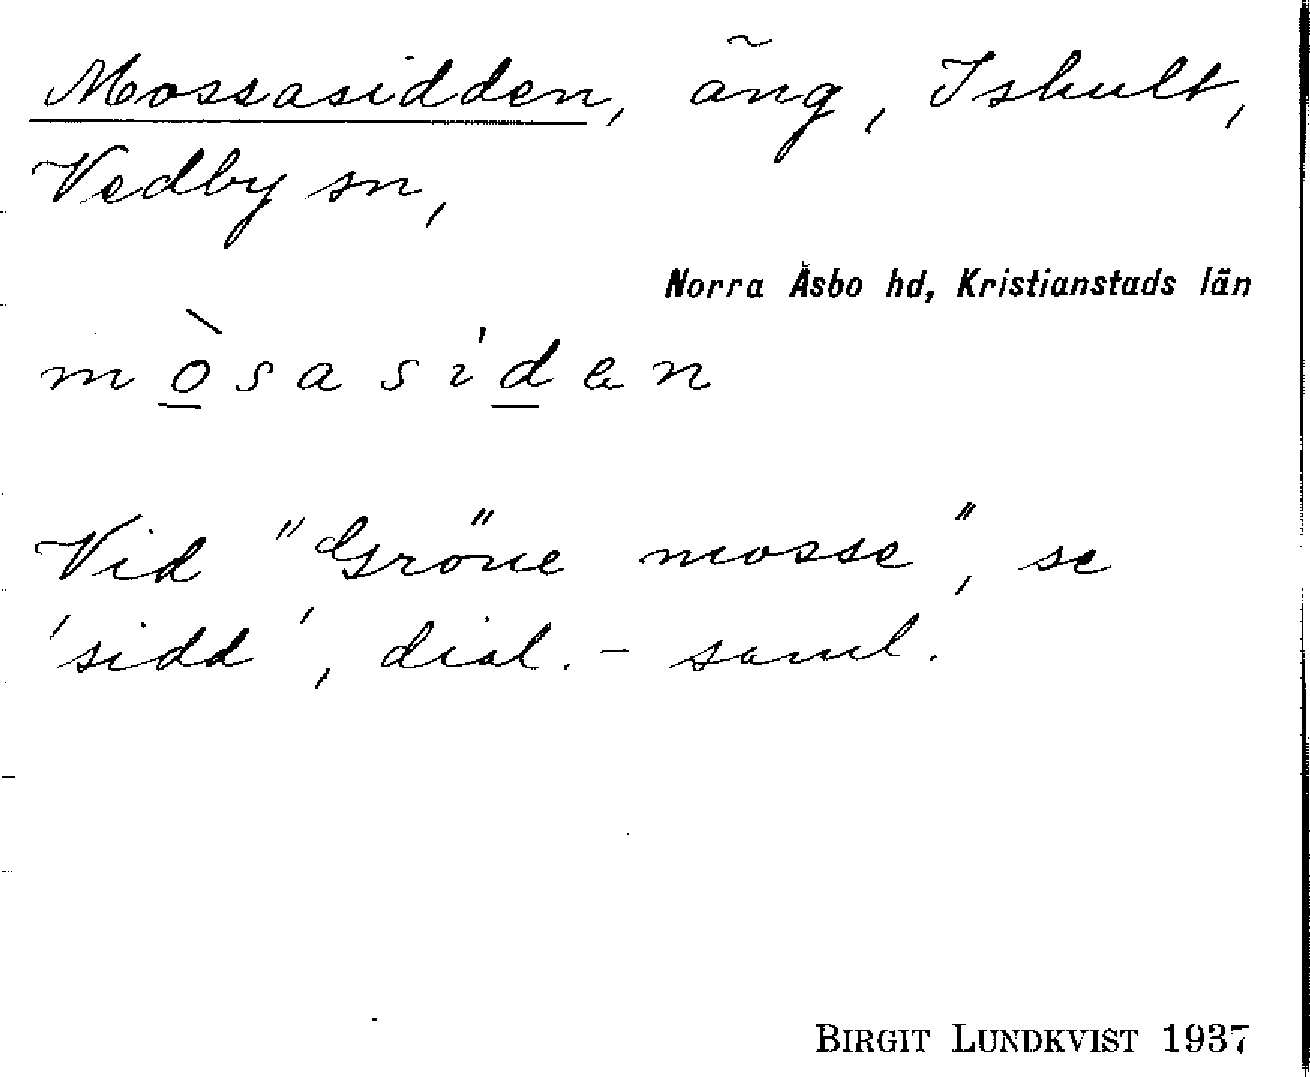 Mossasidden, äng, Ishult,
Vedby sn,
Norra Åsbo hd, Kristianstads län
mòsasiden
Vid "Gröne mosse", se
'sidd', dial.- saml.
BIRGIT LUNDKVIST 1937